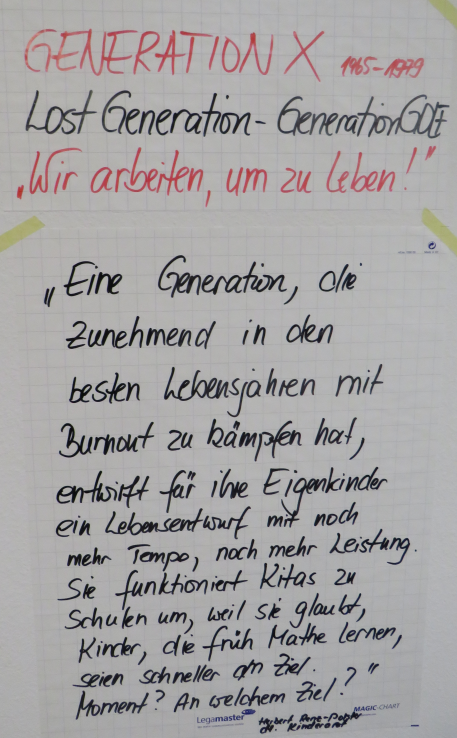 GENERATION X 1965-1979
Lost Generation - Generation GOLF
„Wir arbeiten, um zu leben!"
„Eine Generation, die
zunehmend in den
besten Lebensjahren mit
Burnout zu kämpfen hat,
entwirft für ihre Eigenkinder
ein Lebensentwurf mit noch
mehr Tempo, noch mehr Leistung.
Sie funktioniert Kitas zu
Schulen um, weil sie glaubt,
Kinder, die früh Mathe lernen,
seien schneller am Ziel.
Moment? An welchem Ziel?"
Legamaster MAGIC-CHART
Herbert Renz-Polster
dt. Kinderarzt